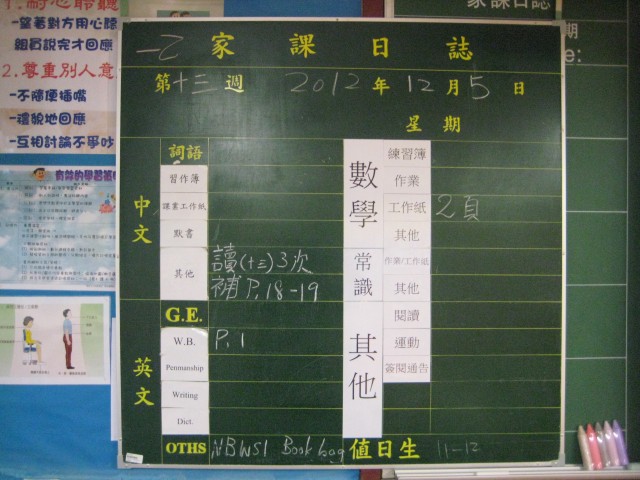 1.耐心聆聽
-望著對方用心聽
組員說完才回應
2.尊重別人意
-不隨便插嘴
-禮貌地回應
-互相討論不爭吵
有效的學習策
家課日誌
期
e:
一乙 家課日誌
第十三週 2012年12月5日
星期
中文
詞語
習作簿
課業工作紙
默書
其他 讀(十三)3次
補P.18-19
英文
G.E.
W.B. P.1
Penmanship
Writing
Dict.
OTHS NBWS1 Book bag
數學
練習簿
作業
工作紙 2頁
其他
常識
作業/工作紙
其他
其他
閱讀
運動
簽閱通告
值日生 11-12